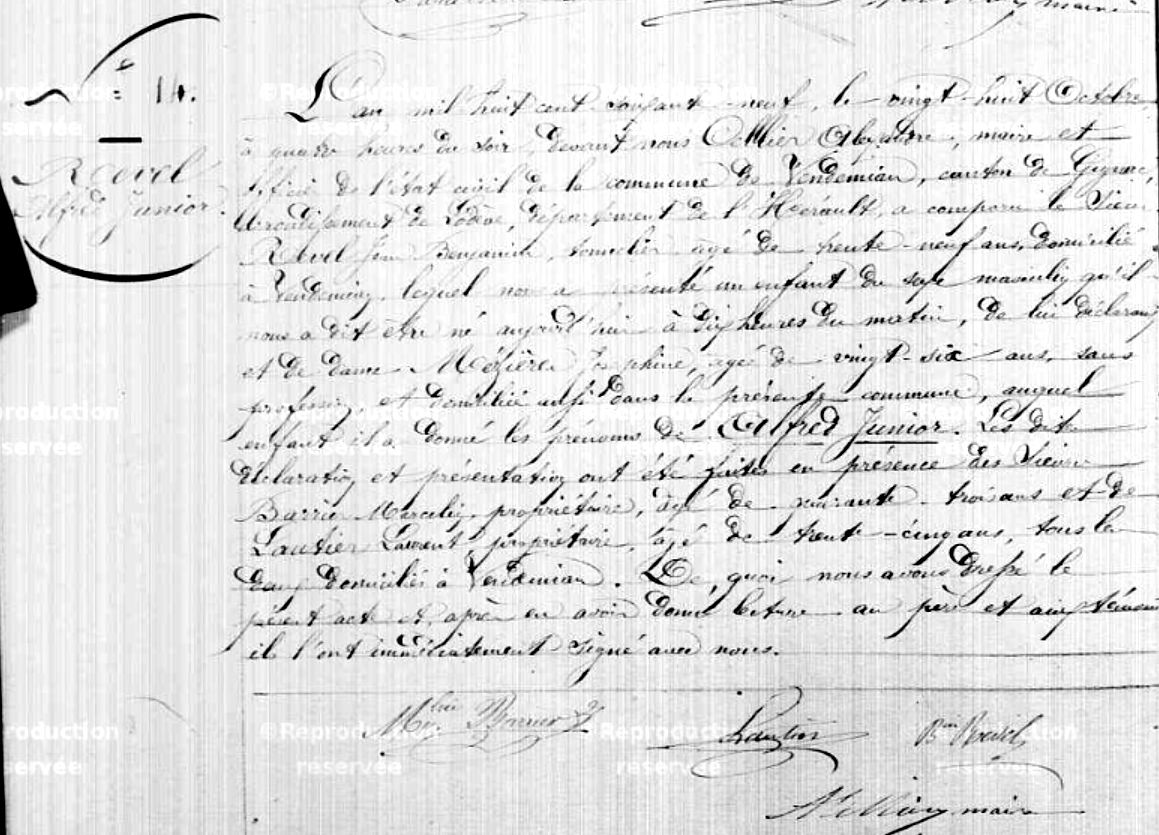 maire
N° 14.
Revel
Alfred Junior.
L'an mil huit cent soixante neuf, le vingt-huit Octobre
à quatre heures du soir, devant nous Cellier Alexandre, maire et
officier de l'état civil de la commune de Vendémian, canton de Gignac,
Arrondissement de Lodève, département de l'Hérault, a comparu le Sieur
Revel Jean Benjamin, tonnelier, agé de trente-neuf ans, domicilié
à Vendémian, lequel nous a présenté un enfant du sexe masculin qu'il
nous a dit être né aujourd'hui à dix heures du matin, de lui déclarant
et de dame Mézières Joséphine, agée de vingt-six ans, sans
profession, et domiciliée aussi dans la présente commune, auquel
enfant il a donné les prénoms de Alfred Junior. Les dites
déclaration et présentation ont été faites en présence des Sieurs
Barrier Marcelin, propriétaire, âgé de quarante-trois ans et de
Lautier Laurent, propriétaire, âgé de trente-cinq ans, tous les
deux domiciliés à Vendémian. De quoi nous avons dressé le
présent acte et, après en avoir donné lecture au père et aux témoins
ils l'ont immédiatement signé avec nous.
Barrier
Lautier
Bin Revel
maire
© Reproduction
réservée